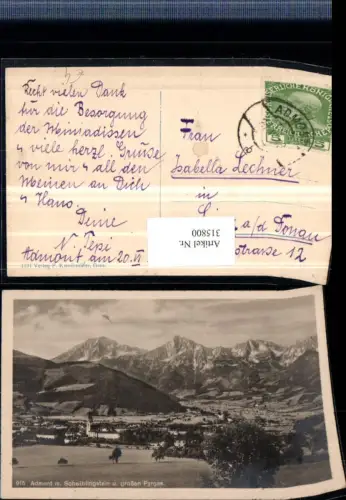 Recht vielen Dank
für die Besorgung
der Weinradissen
4 viele herzl. Grüße
von mir 4 all den
Meinen an Dich
4 Hans.
Deine
N. Pepi
Admont am 20. VI
Frau
Isabella Lechner
in
a/d Donau
straße 12
Artikel Nr.
315800
ADMONT
915 Admont m. Scheiblingstein u. großen Pyrgas.